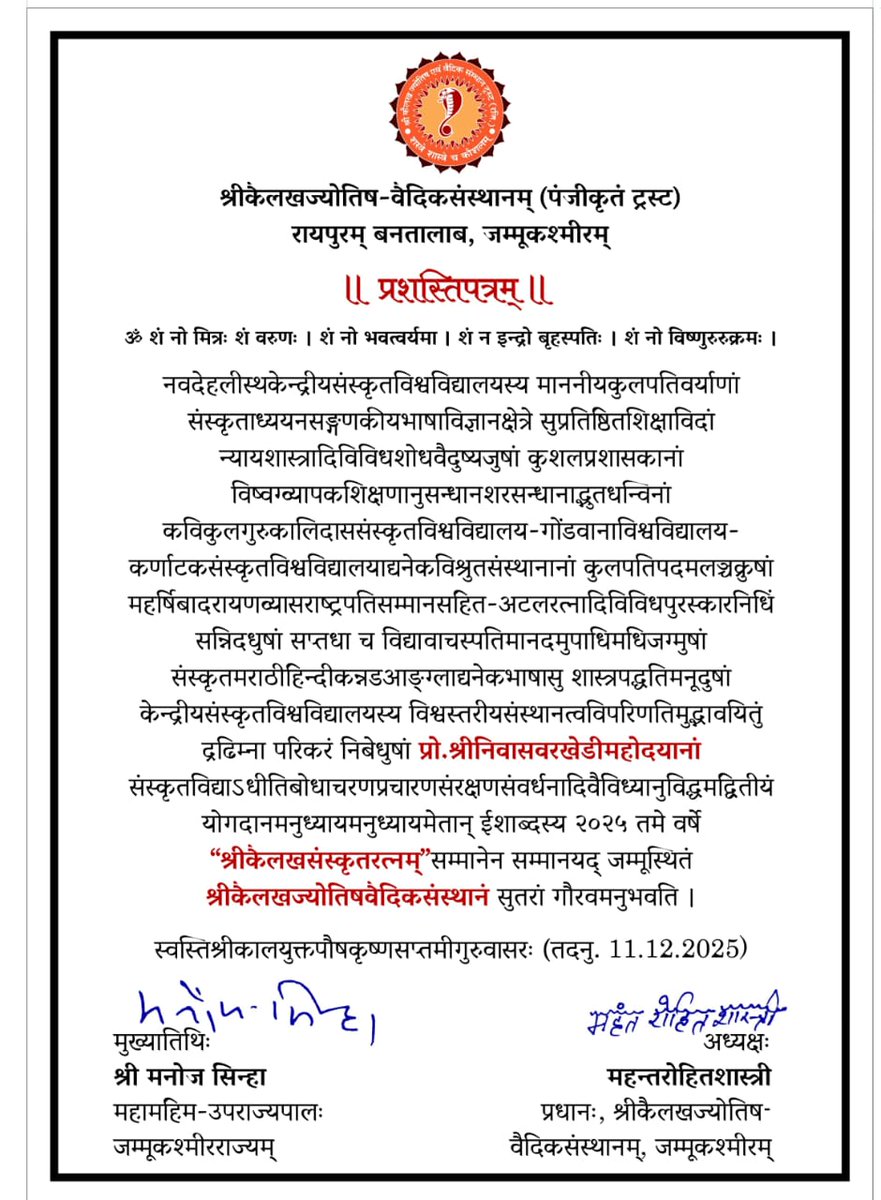 श्री कैलख ज्योतिष एवं वैदिक संस्थान ट्रस्ट (रजि.)
शस्त्रे शास्त्रे च कौशलम्
श्रीकैलखज्योतिष-वैदिकसंस्थानम् (पंजीकृतं ट्रस्ट)
रायपुरम् बनतालाब, जम्मूकश्मीरम्
॥ प्रशस्तिपत्रम् ॥
ॐ शं नो मित्रः शं वरुणः । शं नो भवत्वर्यमा । शं न इन्द्रो बृहस्पतिः । शं नो विष्णुरुरुक्रमः ।
नवदेहलीस्थकेन्द्रीयसंस्कृतविश्वविद्यालयस्य माननीयकुलपतिवर्याणां
संस्कृताध्ययनसङ्गणकीयभाषाविज्ञानक्षेत्रे सुप्रतिष्ठितशिक्षाविदां
न्यायशास्त्रादिविविधशोधवैदुष्यजुषां कुशलप्रशासकानां
विष्वग्व्यापकशिक्षणानुसन्धानशरसन्धानाद्भुतधन्विनां
कविकुलगुरुकालिदाससंस्कृतविश्वविद्यालय-गोंडवानाविश्वविद्यालय-
कर्णाटकसंस्कृतविश्वविद्यालयाद्यनेकविश्रुतसंस्थानानां कुलपतिपदमलञ्चक्रुषां
महर्षिबादरायणव्यासराष्ट्रपतिसम्मानसहित-अटलरत्नादिविविधपुरस्कारनिधिं
सन्निदधुषां सप्तधा च विद्यावाचस्पतिमानदमुपाधिमधिजग्मुषां
संस्कृतमराठीहिन्दीकन्नडआङ्ग्लाद्यनेकभाषासु शास्त्रपद्धतिमनूदुषां
केन्द्रीयसंस्कृतविश्वविद्यालयस्य विश्वस्तरीयसंस्थानत्वविपरिणतिमुद्भावयितुं
द्रढिम्ना परिकरं निबेधुषां प्रो.श्रीनिवासवरखेडीमहोदयानां
संस्कृतविद्याऽधीतिबोधाचरणप्रचारणसंरक्षणसंवर्धनादिवैविध्यानुविद्धमद्वितीयं
योगदानमनुध्यायमनुध्यायमेतान् ईशाब्दस्य २०२५ तमे वर्षे
“श्रीकैलखसंस्कृतरत्नम्”सम्मानेन सम्मानयद् जम्मूस्थितं
श्रीकैलखज्योतिषवैदिकसंस्थानं सुतरां गौरवमनुभवति ।
स्वस्तिश्रीकालयुक्तपौषकृष्णसप्तमीगुरुवासरः (तदनु. 11.12.2025)
मनोज सिन्हा
महंत रोहित शास्त्री
मुख्यातिथिः
अध्यक्षः
श्री मनोज सिन्हा
महन्तरोहितशास्त्री
महामहिम-उपराज्यपालः
प्रधानः, श्रीकैलखज्योतिष-
जम्मूकश्मीरराज्यम्
वैदिकसंस्थानम्, जम्मूकश्मीरम्